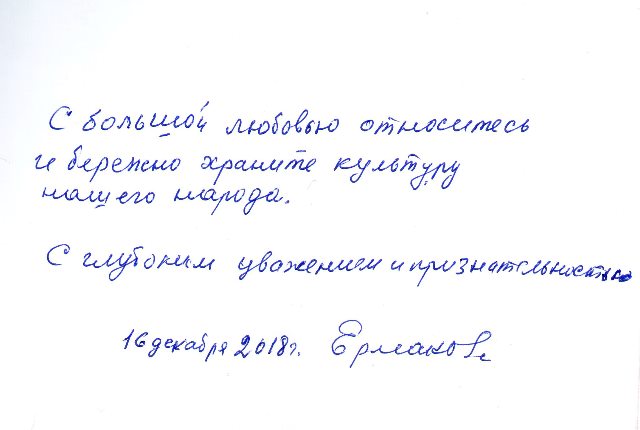 С большой любовью относитесь
и бережно храните культуру
нашего народа.
С глубоким уважением и признательностью
16 декабря 2018г. Ермаков